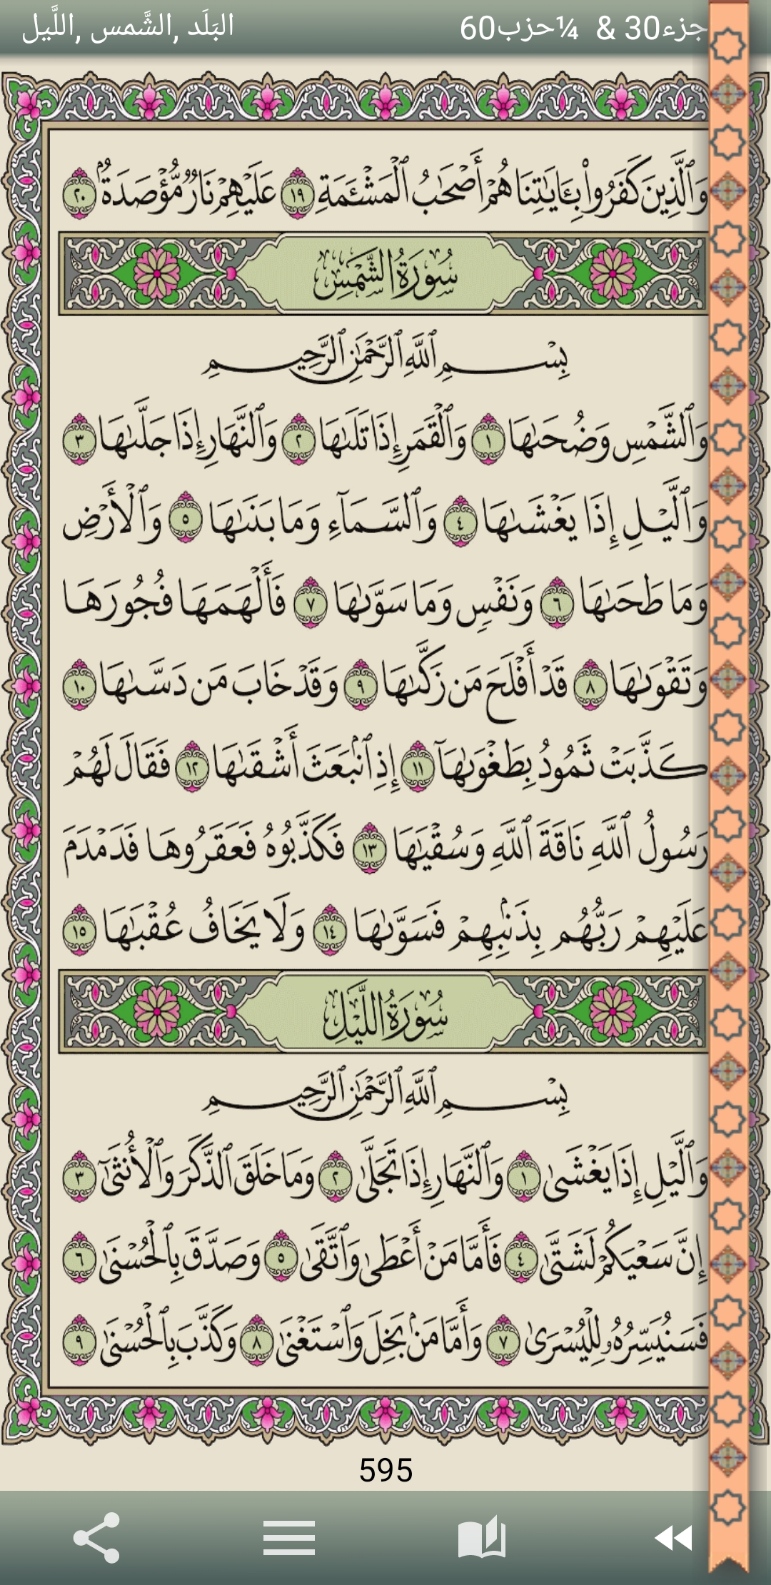 جزء30 & ¼حزب60 البَلَد ,الشَّمس ,اللَّيل
وَٱلَّذِينَ كَفَرُوا۟ بِـَٔايَـٰتِنَا هُمْ أَصْحَـٰبُ ٱلْمَشْـَٔمَةِ ١٩ عَلَيْهِمْ نَارٌ مُّؤْصَدَةٌۢ ٢٠
سُورَةُ الشَّمْسِ
بِسْمِ ٱللَّهِ ٱلرَّحْمَـٰنِ ٱلرَّحِيمِ
وَٱلشَّمْسِ وَضُحَىٰهَا ١ وَٱلْقَمَرِ إِذَا تَلَىٰهَا ٢ وَٱلنَّهَارِ إِذَا جَلَّىٰهَا ٣
وَٱلَّيْلِ إِذَا يَغْشَىٰهَا ٤ وَٱلسَّمَآءِ وَمَا بَنَىٰهَا ٥ وَٱلْأَرْضِ
وَمَا طَحَىٰهَا ٦ وَنَفْسٍ وَمَا سَوَّىٰهَا ٧ فَأَلْهَمَهَا فُجُورَهَا
وَتَقْوَىٰهَا ٨ قَدْ أَفْلَحَ مَن زَكَّىٰهَا ٩ وَقَدْ خَابَ مَن دَسَّىٰهَا ١٠
كَذَّبَتْ ثَمُودُ بِطَغْوَىٰهَآ ١١ إِذِ ٱنۢبَعَثَ أَشْقَىٰهَا ١٢ فَقَالَ لَهُمْ
رَسُولُ ٱللَّهِ نَاقَةَ ٱللَّهِ وَسُقْيَـٰهَا ١٣ فَكَذَّبُوهُ فَعَقَرُوهَا فَدَمْدَمَ
عَلَيْهِمْ رَبُّهُم بِذَنۢبِهِمْ فَسَوَّىٰهَا ١٤ وَلَا يَخَافُ عُقْبَـٰهَا ١٥
سُورَةُ اللَّيْلِ
بِسْمِ ٱللَّهِ ٱلرَّحْمَـٰنِ ٱلرَّحِيمِ
وَٱلَّيْلِ إِذَا يَغْشَىٰ ١ وَٱلنَّهَارِ إِذَا تَجَلَّىٰ ٢ وَمَا خَلَقَ ٱلذَّكَرَ وَٱلْأُنثَىٰٓ ٣
إِنَّ سَعْيَكُمْ لَشَتَّىٰ ٤ فَأَمَّا مَنْ أَعْطَىٰ وَٱتَّقَىٰ ٥ وَصَدَّقَ بِٱلْحُسْنَىٰ ٦
فَسَنُيَسِّرُهُۥ لِلْيُسْرَىٰ ٧ وَأَمَّا مَنۢ بَخِلَ وَٱسْتَغْنَىٰ ٨ وَكَذَّبَ بِٱلْحُسْنَىٰ ٩
595